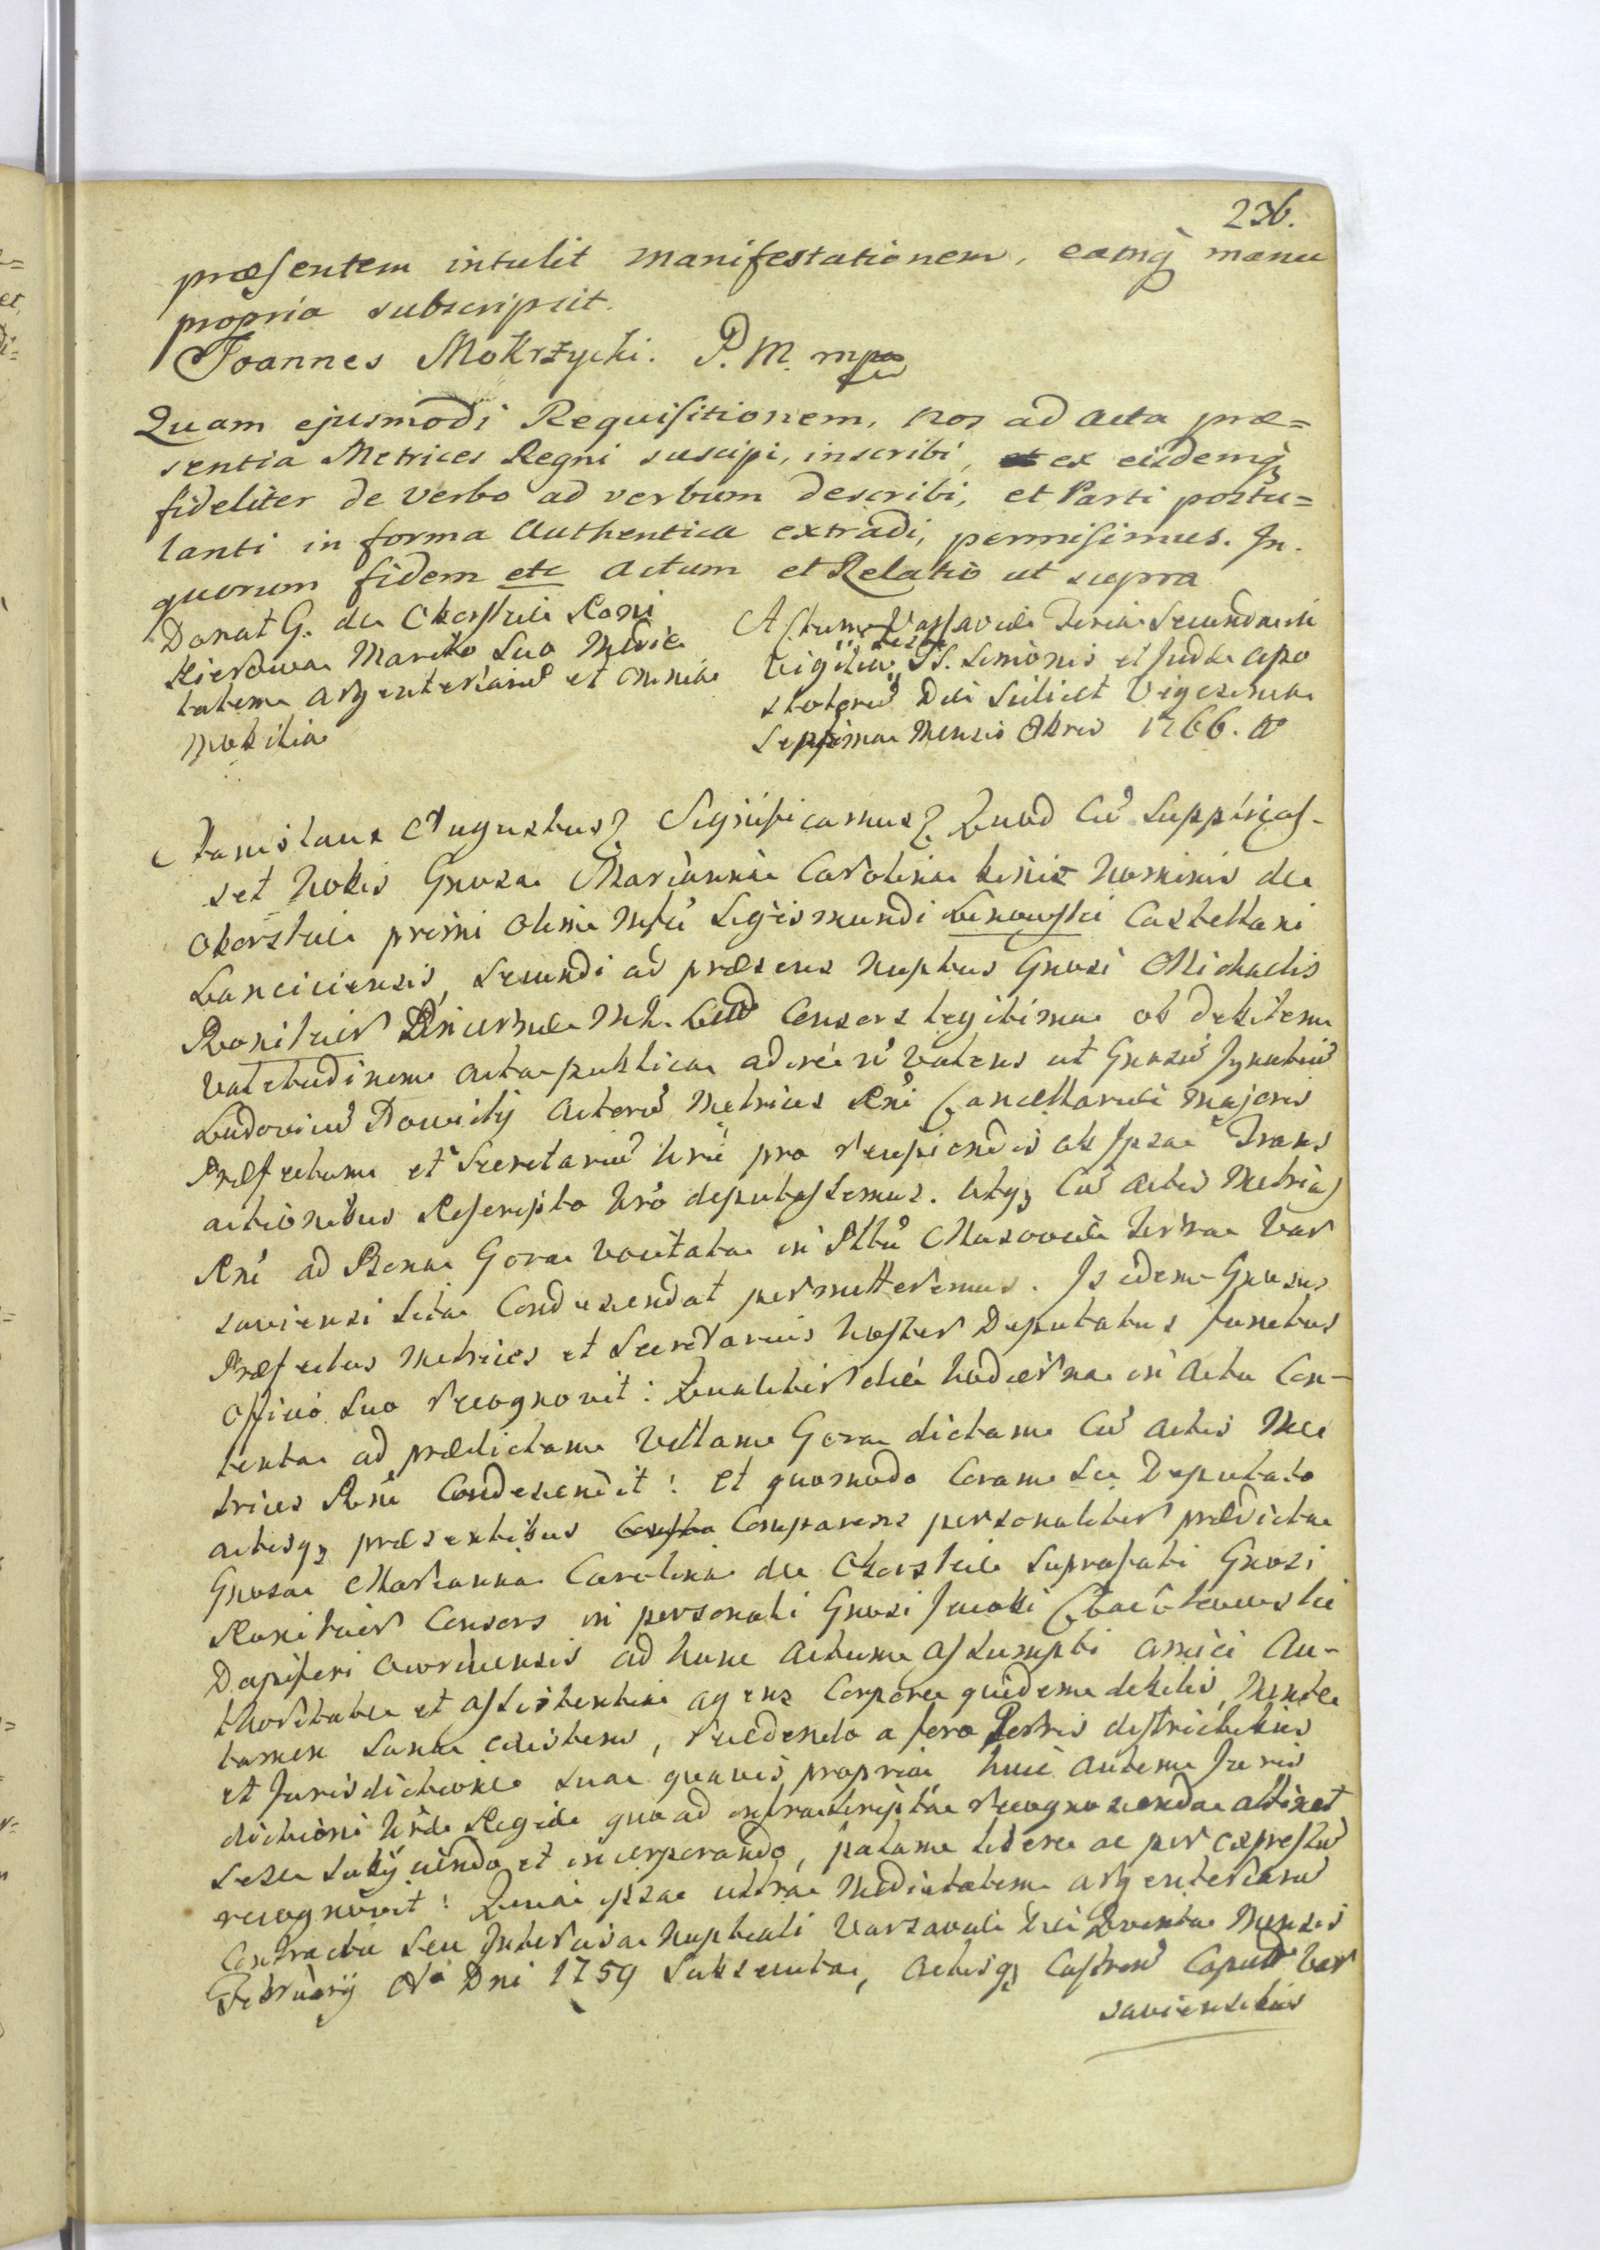 236.
præsentem intulit manifestationem, eamq̀ manu
propria subscripsit.
Joannes Mokrzycki. P. M. mpp
Quam ejusmodi Requisitionem, nos ad Acta præ=
sentia Metrices Regni suscipi, inscribi, ex eisdemq̀
fideliter de verbo ad verbum describi, et Parti postu=
lanti in forma Authentica extradi, permisimus. In
quorum fidem etc Actum et Relatio ut supra
Donat G. de Oborskie Roni
kierowa Marito Suo Medie
tatem Argenteriarū et omnia
Mobilia
Actum Varsaviæ Feria Secunda in
Vigilia festi SS. Simonis et Judæ Apo
stolorū Die Scilicet Vigesima
Septima Mensis Octobris 1766. Ao
Stanislaus Augustus Significamus Quod Cū Supplicas-
set Nobis Gnosa Marianna Carolina binis Nominis de
Oborskie primi olim Mfci Sigismundi Linowski Castellani
Lanciciensis, Secundi ad præsens Nuptus Gnosi Michaelis
Ronikier Consors legitima ob debilem
Valetudinem Acta publica adire n̄ valens ut Gnosū Ignatiū
Ludovicū Dowitty Actorū Metrices Rni Cancellariæ Majoris
Præfectum et Secretariū Nrū pro recipiendis ab Ipsa Trans
actionibus Rescripto Nro deputassemus. Utq̨ Cū Actis Metrices
Rni ad Bona Gora vocitata in Pltū Masoviæ Terra Var
saviensi Sita Condescendat permitteremus. Is idem Gnosus
Præfectus Metrices et Secretarius Noster Deputatus functus
Officio Suo recognovit: Qualiter die hodierna in Actu Con-
tenta ad prædictam Villam Gora dictam Cū Actis Me
trices Rni Condescendit: Et quomodo Coram Se Deputato
actisq̨ præsentibus Comparens personaliter prædicta
Gnosa Marianna Carolina de Oborskie Suprafati Gnosi
Ronikier Consors in personali Gnosi Jacobi
Dapiferi ad hunc Actum assumpti amici Au-
thoritate et assistentia agens Corpore quidem debilis, Mente
tamen Sana existens, recedendo a foro Terris districtibus
et Jurisdictione Sua quavis propria, huic autem Juris
dictioni Nræ Regiæ quo ad infrascripta recognoscenda attinet
Sese Subijciendo et incorporando, palam libere ac per expressū
recognovit: Quia ipsa ultra Medietatem argenteriarū
Contractu Seu Intercisa Nuptiali Varsaviæ Die Mensis
Februarij Ao Dni 1759 Subsecuta, Actisq̨ Castren Capitl Var
saviensibus